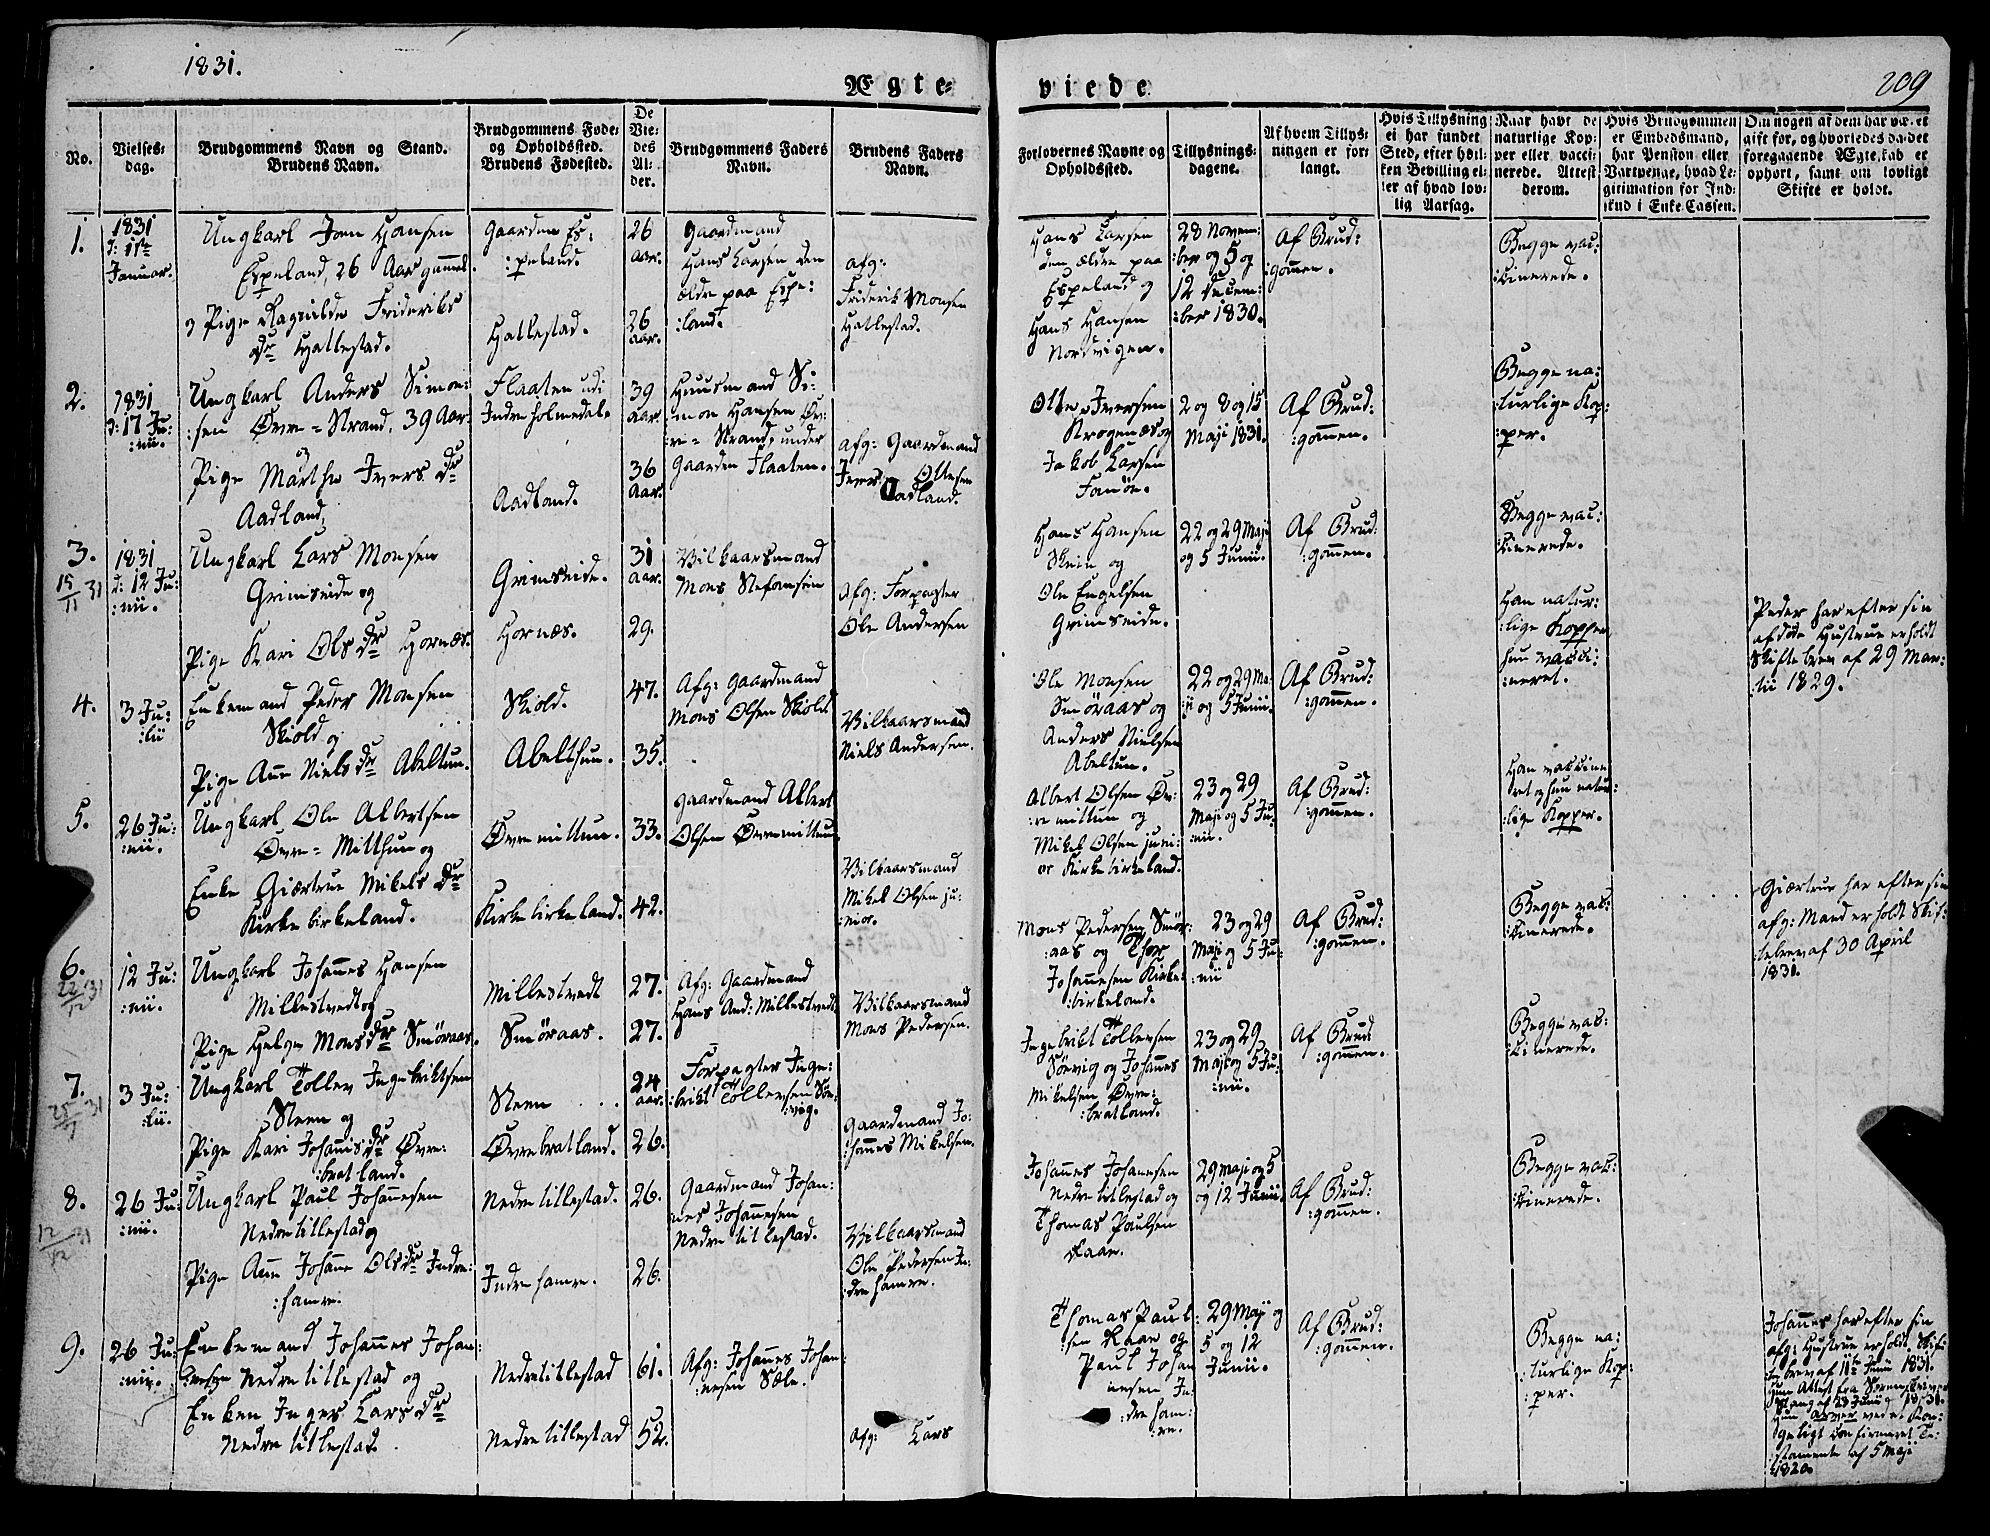 1831.
Ægte-
viede
209
No.
Vielses-
dag.
Brudgommens Navn og Stand.
Brudens Navn.
Brudgommens Føde-
og Opholdssted.
Brudens Fødested.
De
Vie-
des
Al-
der.
Brudgommens Faders
Navn.
Brudens Faders
Navn.
Forlovernes Navne og
Opholdssted.
Tillysnings-
dagene.
Af hvem Tillys-
ningen er for-
langt.
Hvis Tillysning
ei har fundet
Sted, efter hvil-
ken Bevilling el-
ler af hvad lov-
lig Aarsag.
Naar havt de
naturlige Kop-
per eller vacci-
nerede. Attest
derom.
Hvis Brudgommen
er Embedsmand,
har Pension eller
Vartpenge, hvad Le-
gitimation for Ind-
skud i Enke-Cassen.
Om nogen af dem har været
gift før, og hvorledes da det
foregaaende Ægteskab er
ophørt, samt om lovligt
Skifte er holdt.
1.
1831
d: 11te
Januar.
Ungkarl Joen Hansen
Espeland, 26 Aar gammel.
Pige Ragnilde Frideriks
dr Hallestad.
Gaarden Es:
:peland.
Hallestad.
26
Aar.
26
Aar.
Gaardmand
Hans Larsen den
ældre paa Espe:
:land.
afg:
Friderik Monsen
Hatlestad.
Hans Larsen
den ældre paa
Espeland og
Hans Hansen
Nordvigen.
28 Novem:
:ber og 5 og
12 Decem:
:ber 1830.
Af Brud:
:gommen.
Begge vac:
:cinerede.
2.
1831
d: 17 Ju:
:nii.
Ungkarl Anders Simon:
:sen Øvre-Strand, 39 Aar.
og
Pige Marthe Ivers dr
Aadland.
Flaaten udi
Indre holmedal.
Aadland.
39
Aar.
36
Aar.
Huusmand Si:
:mon Hansen Øv:
:re-Strand, under
Gaarden Flaaten.
afg: Gaardmand
Iver Ottesen
Aadland.
Otte Iversen
Krogenæs og
Jakob Larsen
Famøe.
2 og 8 og 15
Maji 1831.
Af Brud:
:gommen.
Begge na:
:turlige Kop:
:per.
3.
15/11 31
1831
d: 12 Ju:
:nii.
Ungkarl Lars Monsen
Grimseide og
Pige Kari Ols dr Hornæs.
Grimseide.
Hornæs.
31
Aar.
29.
Vilkaarsmand
Mons Stefansen
Afg: Forpagter
Ole Andersen
Hans Hansen
Skein og
Ole Engelsen
Grimseide.
22 og 29 Maji
og 5 Junii.
Af Brud:
:gommen.
Begge vac:
:cinerede.
4.
3 Ju:
:lii
Enkemand Peder Monsen
Skiold og
Pige Ane Niels dr Abeltun.
Skiold.
Abelthun.
47.
35.
Afg: Gaardmand
Mons Olsen Skiold
Vilkaarsmand
Niels Andersen.
Ole Monsen
Smøraas og
Anders Nielsen
Abeltun.
22 og 29 Ma:
:ji og 5 Junii.
Af Brud:
:gommen.
Han natur:
:lige Kopper,
hun vacci:
:neret.
Peder har efter sin
afdøde Hustrue erholdt
Skiftebrev af 29 Mar:
:tii 1829.
5.
26 Ju:
:nii.
Ungkarl Ole Albertsen
Øvre-Mitthun og
Enke Giærtrue Mikels dr
Kirkebirkeland.
Øvremittun.
Kirkebirkeland.
33.
42.
Gaardmand Albert
Olsen Øvremittun
Vilkaarsmand
Mikel Olsen ju:
:nior.
Albert Olsen Øv:
:remittun og
Mikel Olsen juni:
or Kirkebirkeland.
23 og 29
Maji og 5 Ju:
:nii.
Af Brud:
:gommen.
Han vaccine
:ret og hun natur:
:lige Kopper.
Giærtrue har efter sin
afg: Mand erholdt Skif:
:tebrev af 30 April
1831.
6.
22/12 31
12 Ju:
:nii.
Ungkarl Johannes Hansen
Millestvedt og
Pige Helge Mons dr Smøraas.
Millestvedt
Smøraas.
27.
27.
Afg: Gaardmand
Hans And: Millestvedt
Vilkaarsmand
Mons Pedersen.
Mons Pedersen Smør:
:aas og Thor
Johannesen Kirke:
:birkeland.
23 og 29
Maji og 5 Ju:
:nii
Af Brud:
:gommen.
Begge vac:
:cinerede.
7.
3 Ju:
:lii.
Ungkarl Tollev Ingebriktsen
Steen og
Pige Kari Johannis dr Øvre:
:bratland.
Steen
Øvrebratland.
24
Aar.
26.
Forpagter Inge:
:brikt Tollevsen Søe:
:vig.
Gaardmand Jo:
:hannes Mikelsen.
Ingebrikt Tollevsen
Søevig og Johannes
Mikelsen Øvre:
:bratland.
23 og 29
Maji og 5 Ju:
:nii.
Af Brud
:gommen.
Begge vac:
:cinerede.
8.
12/12 31
26 Ju:
:nii.
Ungkarl Paul Johannesen
Nedretitlestad og
Pige Ane Johanne Ols dr Indre:
:hamre.
Nedretitlestad.
Indrehamre.
26.
26.
Gaardmand Johan:
nes Johannesen
Nedretitlestad.
Vilkaarsmand
Ole Pedersen In:
:drehamre.
Johannes Johannesen
Nedretitlestad og
Thomas Paulsen
Raae.
29 Maji og 5
og 12 Junii.
Af Brud:
:gommen.
Begge vac:
:cinerede.
9.
26 Ju:
:nii.
Enkemand Johannes Johan:
:nesen Nedretitlestad og
Enken Inger Lars dr
Nedretitlestad.
Nedretitlestad
Nedretitlestad
61.
52.
Afg: Johannes Johan:
:nesen Sæle.
afg: Lars
Thomas Paul:
:sen Raae og
Paul Johan
nesen In:
:dreham:
:re.
29 Maji og
5 og 12
Junii.
Af Brud:
:gommen.
Begge na:
:turlige Kop:
:per.
Johannes har efter sin
afg: Hustrue erholdt Skif:
:tebrev af 11te Junii 1831.
Hun Attest fra Sorenskriver
af 28 Junii 1831.
Hun ved et Kon:
geligt Confirmeret Te:
:stamente af 5 Maji
:1820.